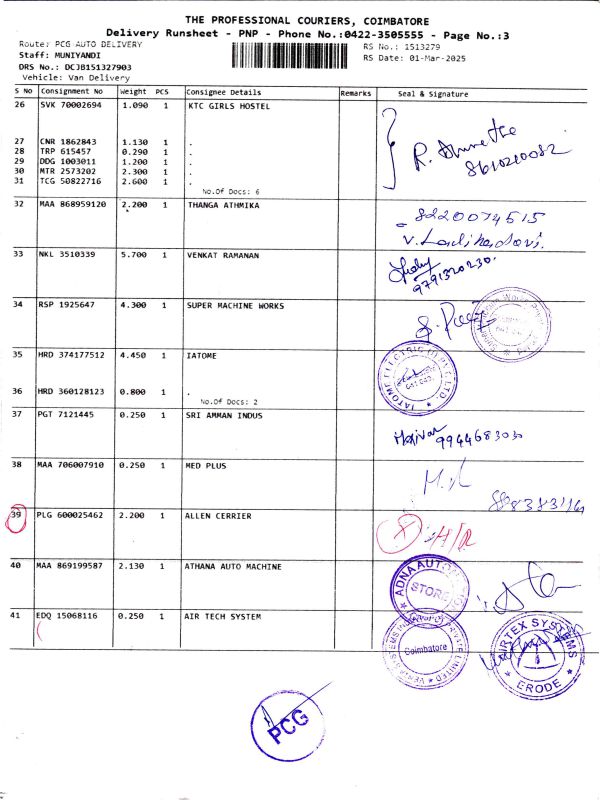 THE PROFESSIONAL COURIERS, COIMBATORE
Delivery Runsheet - PNP - Phone No.:0422-3505555 - Page No.:3
Route: PCG AUTO DELIVERY
RS No.: 1513279
Staff: MUNIYANDI
RS Date: 01-Mar-2025
DRS No.: DCJB151327903
Vehicle: Van Delivery
S No Consignment No Weight PCS Consignee Details Remarks Seal & Signature
26 SVK 70002694 1.090 1 KTC GIRLS HOSTEL
27 CNR 1862843 1.130 1 .
28 TRP 615457 0.290 1 .
29 DDG 1003011 1.200 1 .
30 MTR 2573202 2.300 1 .
31 TCG 50822716 2.600 1 .
No.Of Docs: 6
8610210082
32 MAA 868959120 2.200 1 THANGA ATHMIKA
8220074515
33 NKL 3510339 5.700 1 VENKAT RAMANAN
9791320230.
34 RSP 1925647 4.300 1 SUPER MACHINE WORKS
35 HRD 374177512 4.450 1 IATOME
IATOME ELECTRIC (I) PVT LTD.
36 HRD 360128123 0.800 1 .
No.Of Docs: 2
37 PGT 7121445 0.250 1 SRI AMMAN INDUS
9944683030
38 MAA 706007910 0.250 1 MED PLUS
39 PLG 600025462 2.200 1 ALLEN CERRIER
40 MAA 869199587 2.130 1 ATHANA AUTO MACHINE
ADNA AUTO
STORE
41 EDQ 15068116 0.250 1 AIR TECH SYSTEM
PRIVATE LIMITED
Coimbatore
AIRTEX SYSTEMS
ERODE
PCG